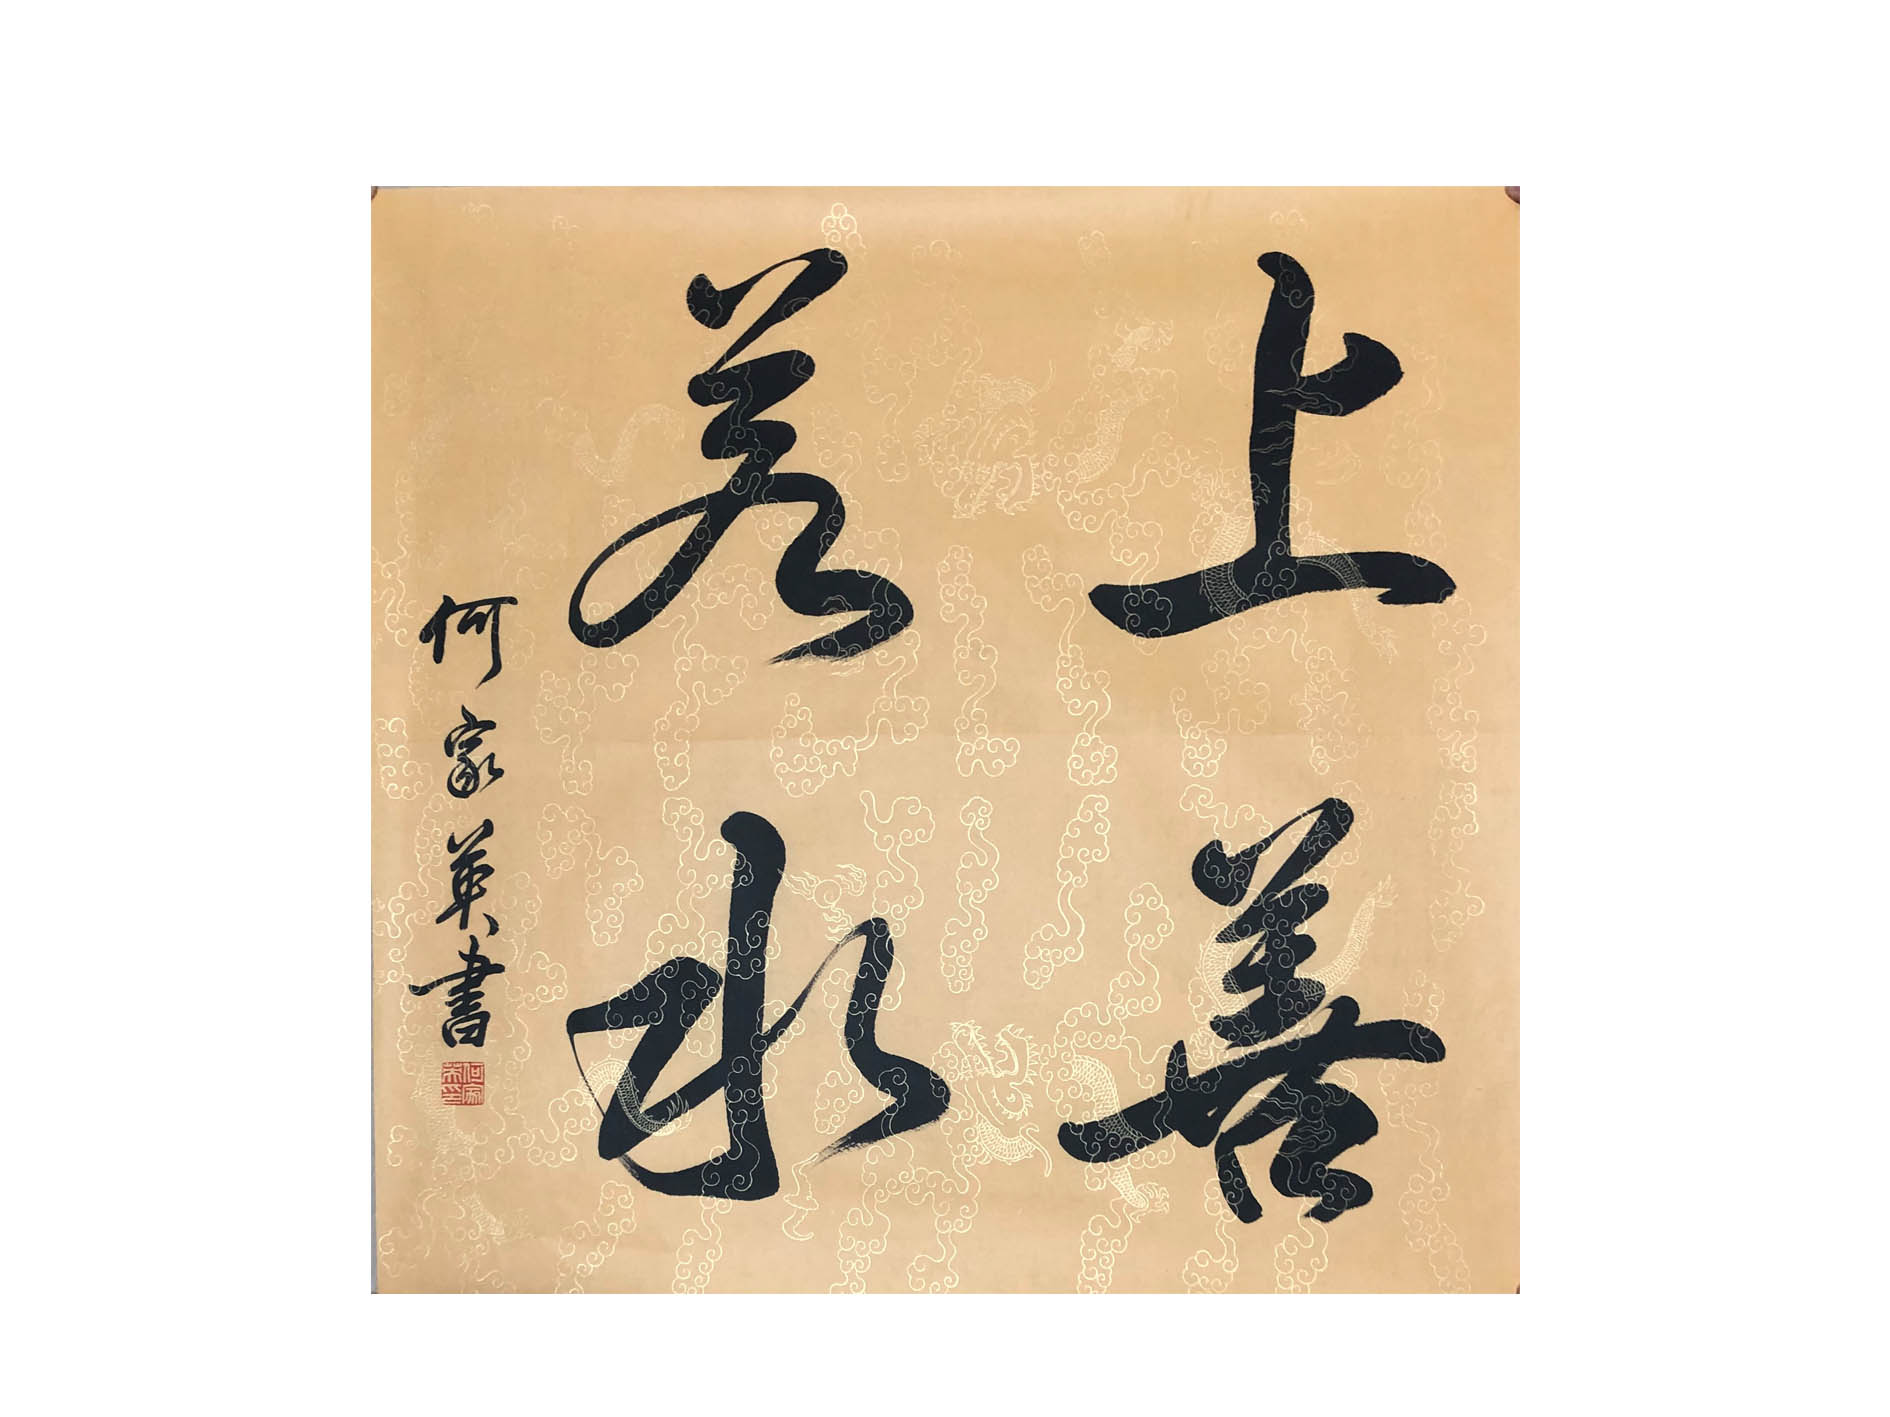 上善
若水
何家英書
何家英印